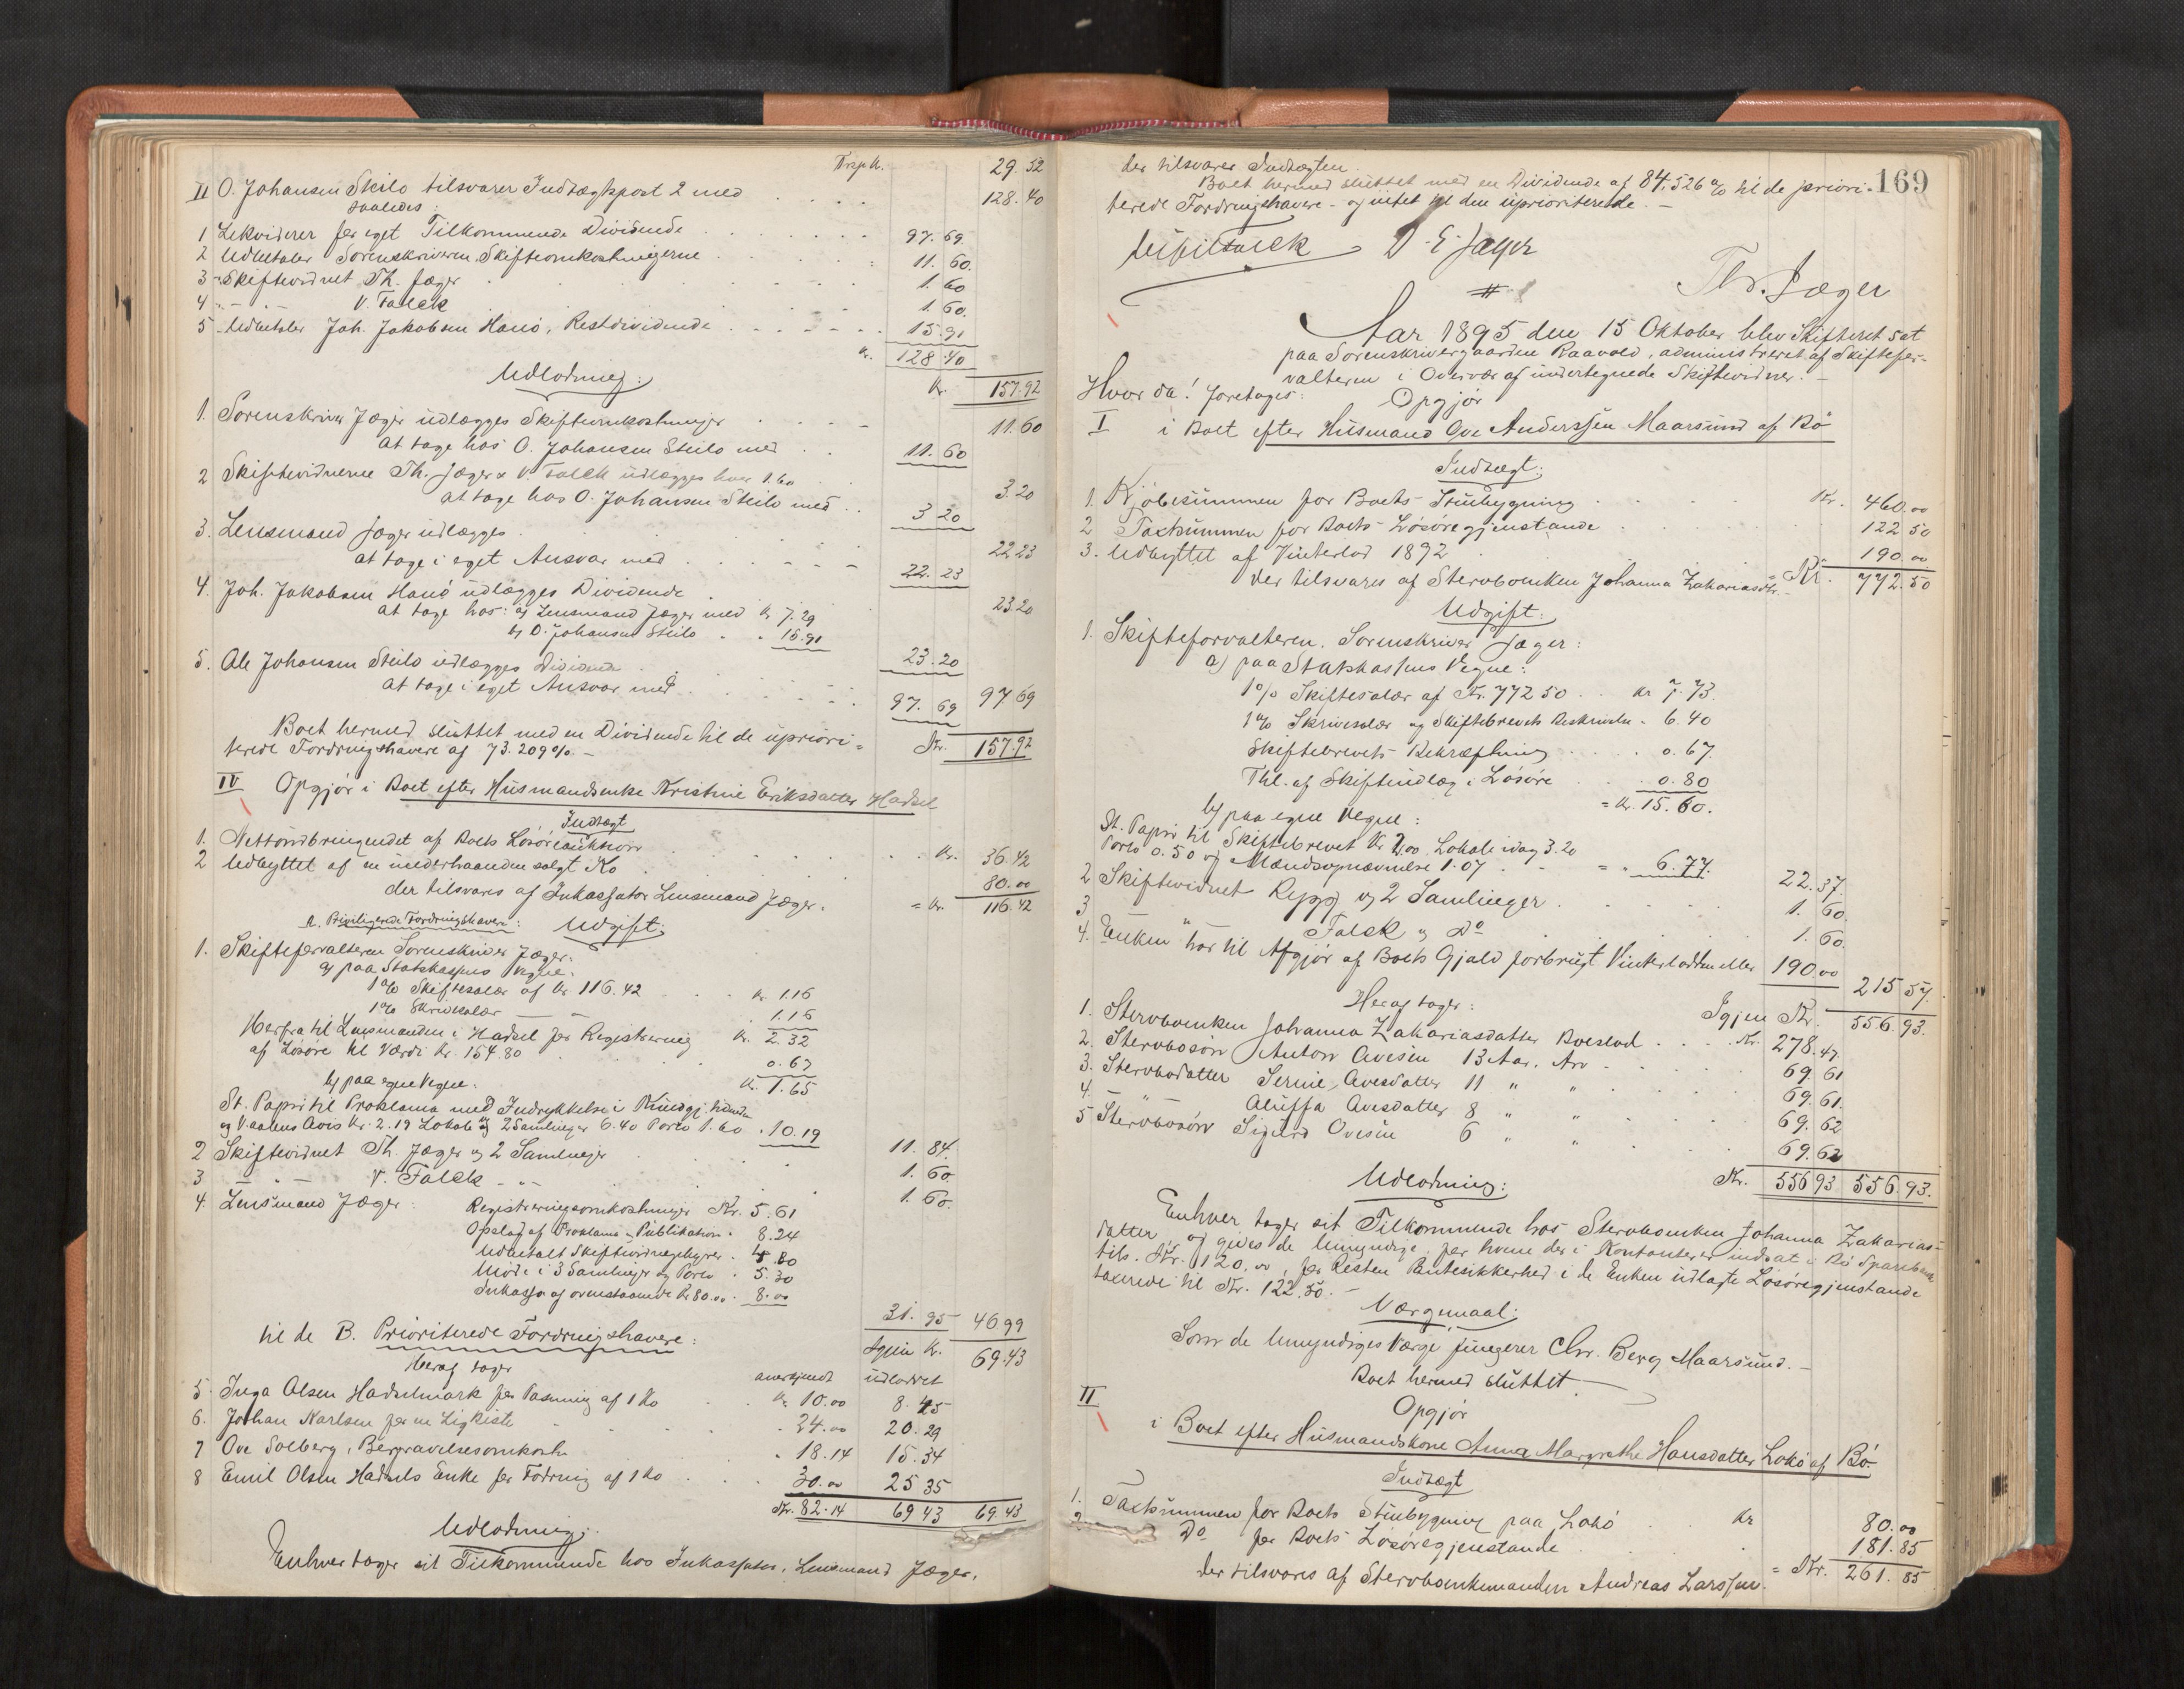 Trspt. 29.52
II O. Johansen Steilo tilsvarer Indtægtspost 2 med 128.40
saaledes:
1 Likviderer for eget Tilkommende Dividende 97.69
2 Udbetaler Sorenskriveren Skifteomkostningerne 11.60
3 - Skiftevidnet Th. Jæger 1.60
4 - " - V. Falck 1.60.
5 - Udbetaler Joh. Jakobsen Hanö, Restdividende 15.91
Kr. 128.40
Kr. 157.92
Udlodning:
1. Sorenskriver Jæger udlægges Skifteomkostninger 11.60
at tage hos O. Johansen Steilo med 11.60
2 Skiftevidnerne Th. Jæger & V. Falck udlægges hver 1.60 3.20
at tage hos O. Johansen Steilo med 3 20
3. Lensmand Jæger udlægges 22.23
at tage i eget Ansvar med 22.23
4. Joh. Jakobsen Hanö udlægges Dividende 23.20
at tage hos: a) Lensmand Jæger med Kr 7.29
b) O. Johansen Steilo " 15.91
23.20
5. Ole Johansen Steilo udlægges Dividende 97 69
at tage i eget Ansvar med 97.69
Boet hermed sluttet med en Dividende til de upriori=
terede Fordringshavere af 73.209%. -
Kr. 157.92
IV Opgjör i Boet efter Husmandsenke Kristine Eriksdatter Hadsel
Indtægt
1. Nettoudbringendet af Boets Lösöreauktion Kr. 36.42
2 Udbyttet af en underhaanden solgt Ko 80.00
der tilsvares af Inkassator Lensmand Jæger. = Kr. 116.42
A. Privilegerede Fordringshavere: Udgift:
1. Skifteforvalteren Sorenskriver Jæger:
a) paa Statskassens Vegne:
1% Skiftesalær af Kr. 116.42 Kr. 1.16
1% Skrivesalær - " - 1.16
Kr. 2.32
Herfra til Lensmanden i Hadsel for Registrering
af Lösöre til Værdi Kr. 154.80 0.67
Kr. 1.65
b) paa egne Vegne:
St. Papir til Proklama med Indrykkelse i Kundgj. tidende
og V.aalens Avis Kr. 2.19 Lokale og 2 Samlinger 6.40 Porto 1.60 . 10.19
11.84
2 Skiftevidnet Th. Jæger og 2 Samlinger 1.60.
3 - " - V. Falck - " - 1.60.
4. Lensmand Jæger: Registreringsomkostninger Kr. 5.61
Opslag af Proklama og Publikation . 8.24
Udbetalt Skiftevidnegebyrer . 4.80
Möde i 3 Samlinger og Porto . 5.30
Inkasso af ovenstaaende Kr 80.00 . 8.00
31.95 46 99
til de B. Prioriterede Fordringshavere: Igjen Kr. 69.43
Heraf tager anerkjendt udloddet
5. Inga Olsen Hadselmark for Pasning af 1 Ko Kr 10.00 8.45
6. Johan Karlsen for en Ligkiste . 24.00 20.29
7 Ove Solberg, Begravelsesomkostn . 18.14 15.34
8 Emil Olsen Hadsels Enke for Fodring af 1 Ko 30.00 25 35
Kr. 82.14 69 43 69.43
Udlodning:
Enhver tager sit Tilkommende hos Inkassator, Lensmand Jæger,
169
der tilsvarer Indtægten.
Boet hermed sluttet med en Dividende af 84.526% til de priori=
terede Fordringshavere - og intet til den uprioriterede. -
D. E. Jæger
Th. Jæger
#
Aar 1895 den 15 Oktober blev Skifteret sat
paa Sorenskrivergaarden Raavold, administreret af Skiftefor=
valteren i Overvær af undertegnede Skiftevidner. -
Hvor da! foretages:
Opgjör
I i Boet efter Husmand Ove Anderssen Maarsund af Bö
Indtægt:
1. Kjöbesummen for Boets Stuebygning Kr. 460.00
2 Taxtsummen for Boets Lösöregjenstande 122 50
3. Udbyttet af Vinterlod 1892 190.00
der tilsvares af Stervboenken Johanna Zakariasdtr. = Kr. 772.50
Udgift:
1. Skifteforvalteren. Sorenskriver Jæger:
a) paa Statskassens Vegne:
1% Skiftesalær af Kr. 772 50 Kr 7.73.
1% Skrivesalær og Skiftebrevets Beskrivelse . 6.40
Skiftebrevets Bekræftning . 0.67.
Thl. af Skifteudlæg i Lösöre . 0.80
= Kr. 15.60.
b) paa egne Vegne:
St. Papir til Skiftebrevet Kr 2.00 Lokale idag 3.20
Porto 0.50 og Mændsopnævnelse 1.07 = . 6.77.
22.37.
2 Skiftevidnet Repp og 2 Samlinger 1.60.
3 " Falck og Do 1.60.
4. Enken har til Afgjör af Boets Gjæld forbrugt Vinterlodden eller 190.00
215 57.
Heraf tager: Igjen Kr. 556.93.
1. Stervboenken Johanna Zakariasdatter Boeslod Kr. 278.47.
2. Stervbosön Anton Ovesen 13 Aar, Arv 69.61
3. Stervbodatter Serine Ovesdatter 11 " " 69.61.
4. - " - Aluffa Ovesdatter 8 " " 69.62
5 Stervbosön Sigurd Ovesen 6 " " 69.62
Kr. 556 93 556.93.
Udlodning:
Enhver tager sit Tilkommende hos Stervboenken Johanna Zakarias=
datter, og gives de Umyndige, for hvem der i Kontanter er indsat i Bö Sparebank
tils. Kr. 120.00, for Resten Pantesikkerhed i de Enken udlagte Lösöregjenstande
taxerede til Kr. 122.50. -
Værgemaal:
Som de Umyndiges Værge fungerer Chr. Berg Maarsund. -
Boet hermed sluttet -
II Opgjör
i Boet efter Husmandskone Anna Margrethe Hansdatter Lokö af Bö
Indtægt
1. Taxtsummen for Boets Stuebygning paa Lokö Kr 80.00
2 Do for Boets Lösöregjenstande 181.85
der tilsvares af Stervboenkemanden Andreas Larssen. = Kr. 261.85